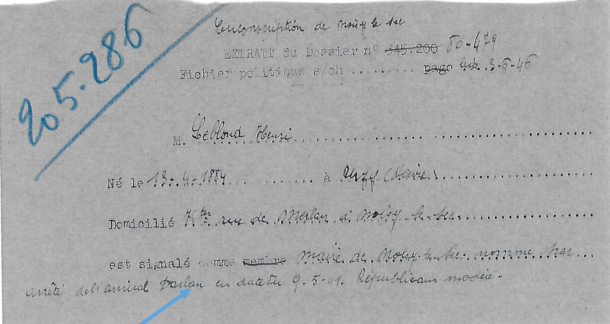 Circonscription de noisy le sec
205.286
EXTRAIT du Dossier n° 345.200 80-479
Fichier politique s/ch ......... page 3-6-46
M. Leblond Henri
Né le 13-4-1884 à (Nièvre)
Domicilié rue de Merlan à Noisy-le-Sec
est signalé comme membre maire de Noisy-le-Sec nommé par
arrêté de l'amiral Darlan en date du 9-5-41. Républicain modéré.